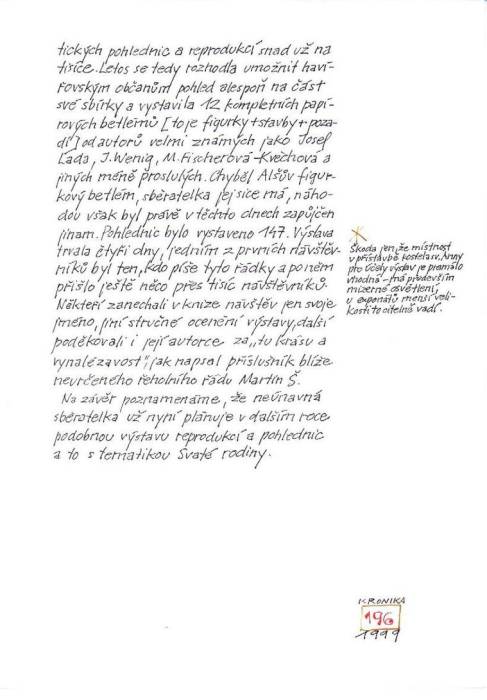 tických pohlednic a reprodukcí snad už na
tisíce. Letos se tedy rozhodla umožnit haví-
řovským občanům pohled alespoň na část
své sbírky a vystavila 12 kompletních papí-
rových betlémů [to je figurky + stavby + poza-
dí] od autorů velmi známých jako Josef
Lada, J. Wenig, M. Fischerová-Kvěchová a
jiných méně proslulých. Chyběl Alšův figur-
kový betlém, sběratelka jej sice má, náho-
dou však byl právě v těchto dnech zapůjčen
jinam. Pohlednic bylo vystaveno 147. Výstava
trvala čtyři dny, jedním z prvních návštěv-
níků byl ten, kdo píše tyto řádky a po něm
přišlo ještě něco přes tisíc návštěvníků.
Někteří zanechali v knize návštěv jen svoje
jméno, jiní stručné ocenění výstavy, další
poděkovali i její autorce za „tu krásu a
vynalézavost", jak napsal příslušník blíže
neurčeného řeholního řádu Martin Š.
Na závěr poznamenáme, že neúnavná
sběratelka už nyní plánuje v dalším roce
podobnou výstavu reprodukcí a pohlednic
a to s tematikou Svaté rodiny.
Škoda jen, že místnost
v přístavbě kostela sv. Anny
pro účely výstav je pramálo
vhodná – má především
mizerné osvětlení,
u exponátů menší veli-
kosti to citelně vadí.
KRONIKA
196
1999